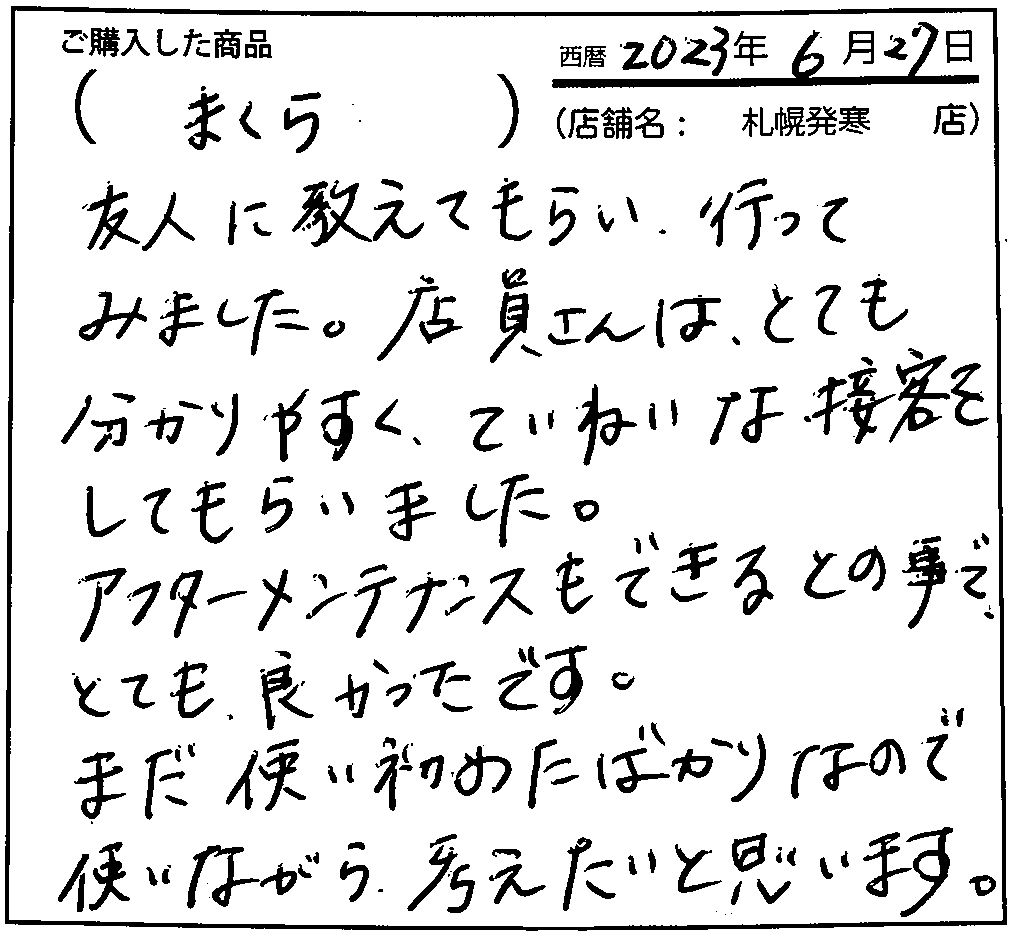 ご購入した商品
西暦 2023年 6月27日
( まくら )
(店舗名： 札幌発寒 店)
友人に教えてもらい、行って
みました。店員さんは、とても
分かりやすく、ていねいな接客を
してもらいました。
アフターメンテナンスもできるとの事で、
とても、良かったです。
まだ使い初めたばかりなので
使いながら、考えたいと思います。